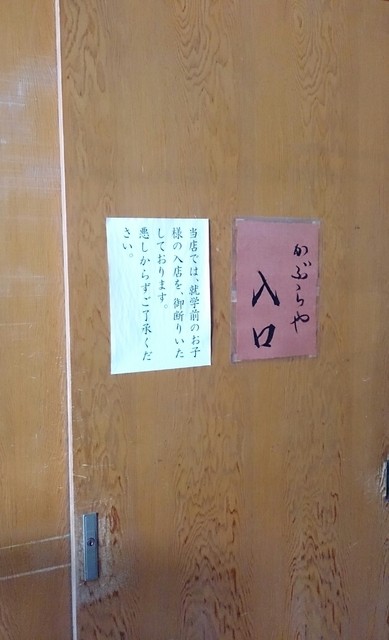 かぶらや
入口
当店では、就学前のお子
様の入店を、御断りいた
しております。
悪しからずご了承くだ
さい。